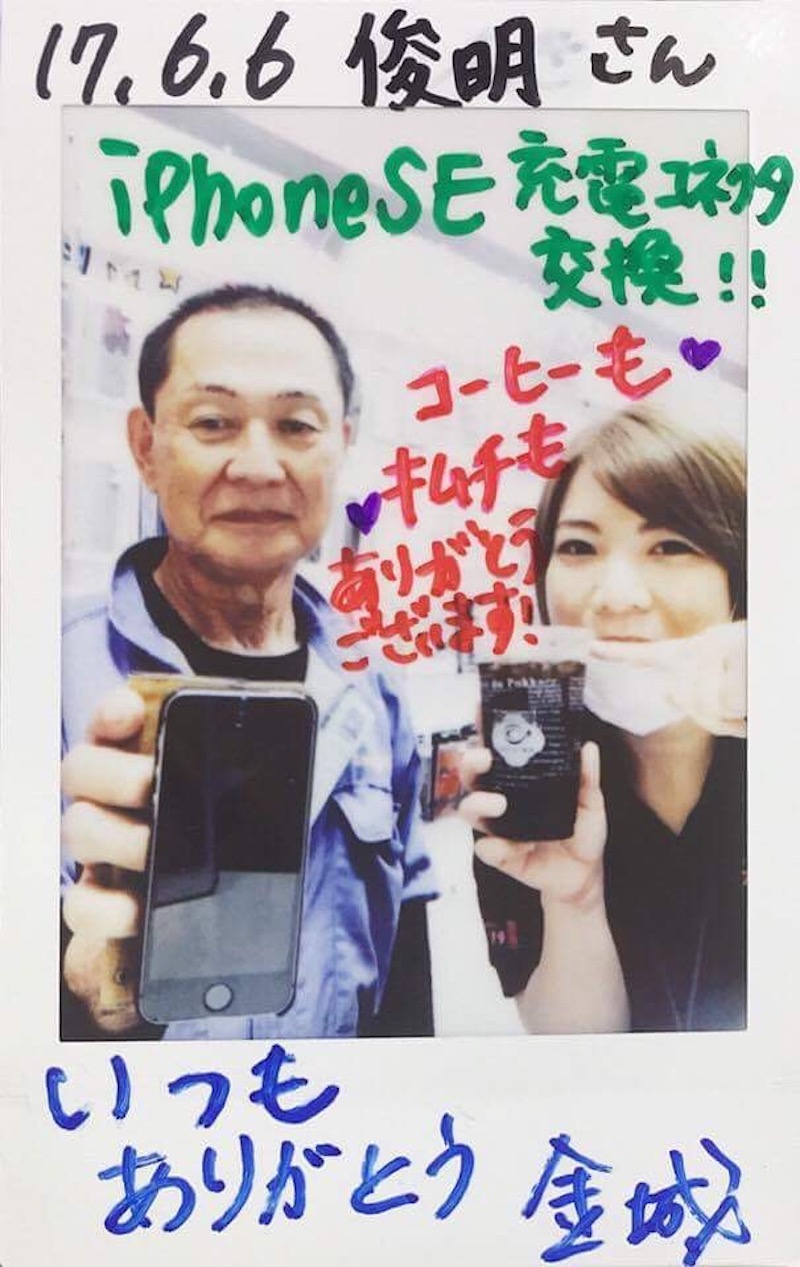 17.6.6 俊明さん
iPhoneSE 充電コネクタ
交換!!
コーヒーも
キムチも
ありがとう
ございます!
いつも
ありがとう 金城